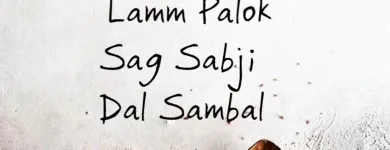 Lamm Palok
Sag Sabji
Dal Sambal